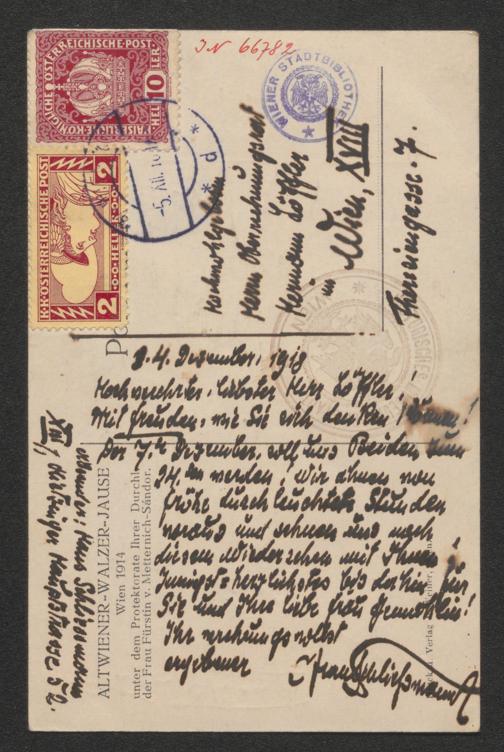 JN 66782
WIENER STADTBIBLIOTHEK
KAISERLICHE KÖNIGLICHE ÖSTERREICHISCHE POST
10 HELLER 10
K.K. ÖSTERREICHISCHE POST
2 HELLER 2
-5. XII. 18
* d *
Hochwohlgeboren
Herrn Oberrechnungsrat
Hermann Löffler
in Wien, XVIII
Theresiengasse. 7.
d. 4. Dezember, 1918
Hochverehrter, liebster Herr Löffler,!
Mit Freuden, wie Sie sich denken können!
Der 7.te Dezember, soll uns Beiden zum
24.ten werden! Wir ahnen von
Fröhe durchleuchtete Stunden
voraus und sehnen uns nach
diesem Wiedersehen mit Ihnen!
Innigst-herzlichstes bis dorthin für
Sie und Ihre liebe Frau Gemahlin!
Ihr verehrungsvollst
ergebener
Hans Schliessmann
Absender: Hans Schliessmann
XIII/, Hietzinger Hauptstrasse 52.
ALTWIENER-WALZER-JAUSE
Wien 1914
unter dem Protektorate Ihrer Durchl.
der Frau Fürstin v. Metternich-Sándor.
Verlag